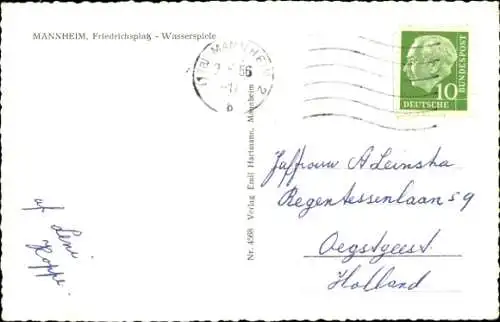 MANNHEIM, Friedrichsplatz - Wasserspiele
MANNHEIM 2
56
b
10
DEUTSCHE
BUNDESPOST
Nr. 4568 Verlag Emil Hartmann, Mannheim
Juffrouw A Leinsha
Regentessenlaan 59
Oegstgeest
Holland
af
Leni
Koppe.